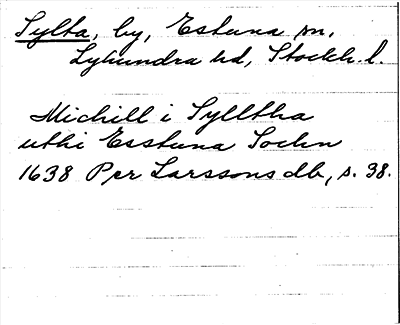 Sylta, by, Estuna sn,
Lyhundra hd, Stockh. l.
Michill i Sylltha
uthi Esstuna Sochn
1638 Per Larssons db, s. 38.